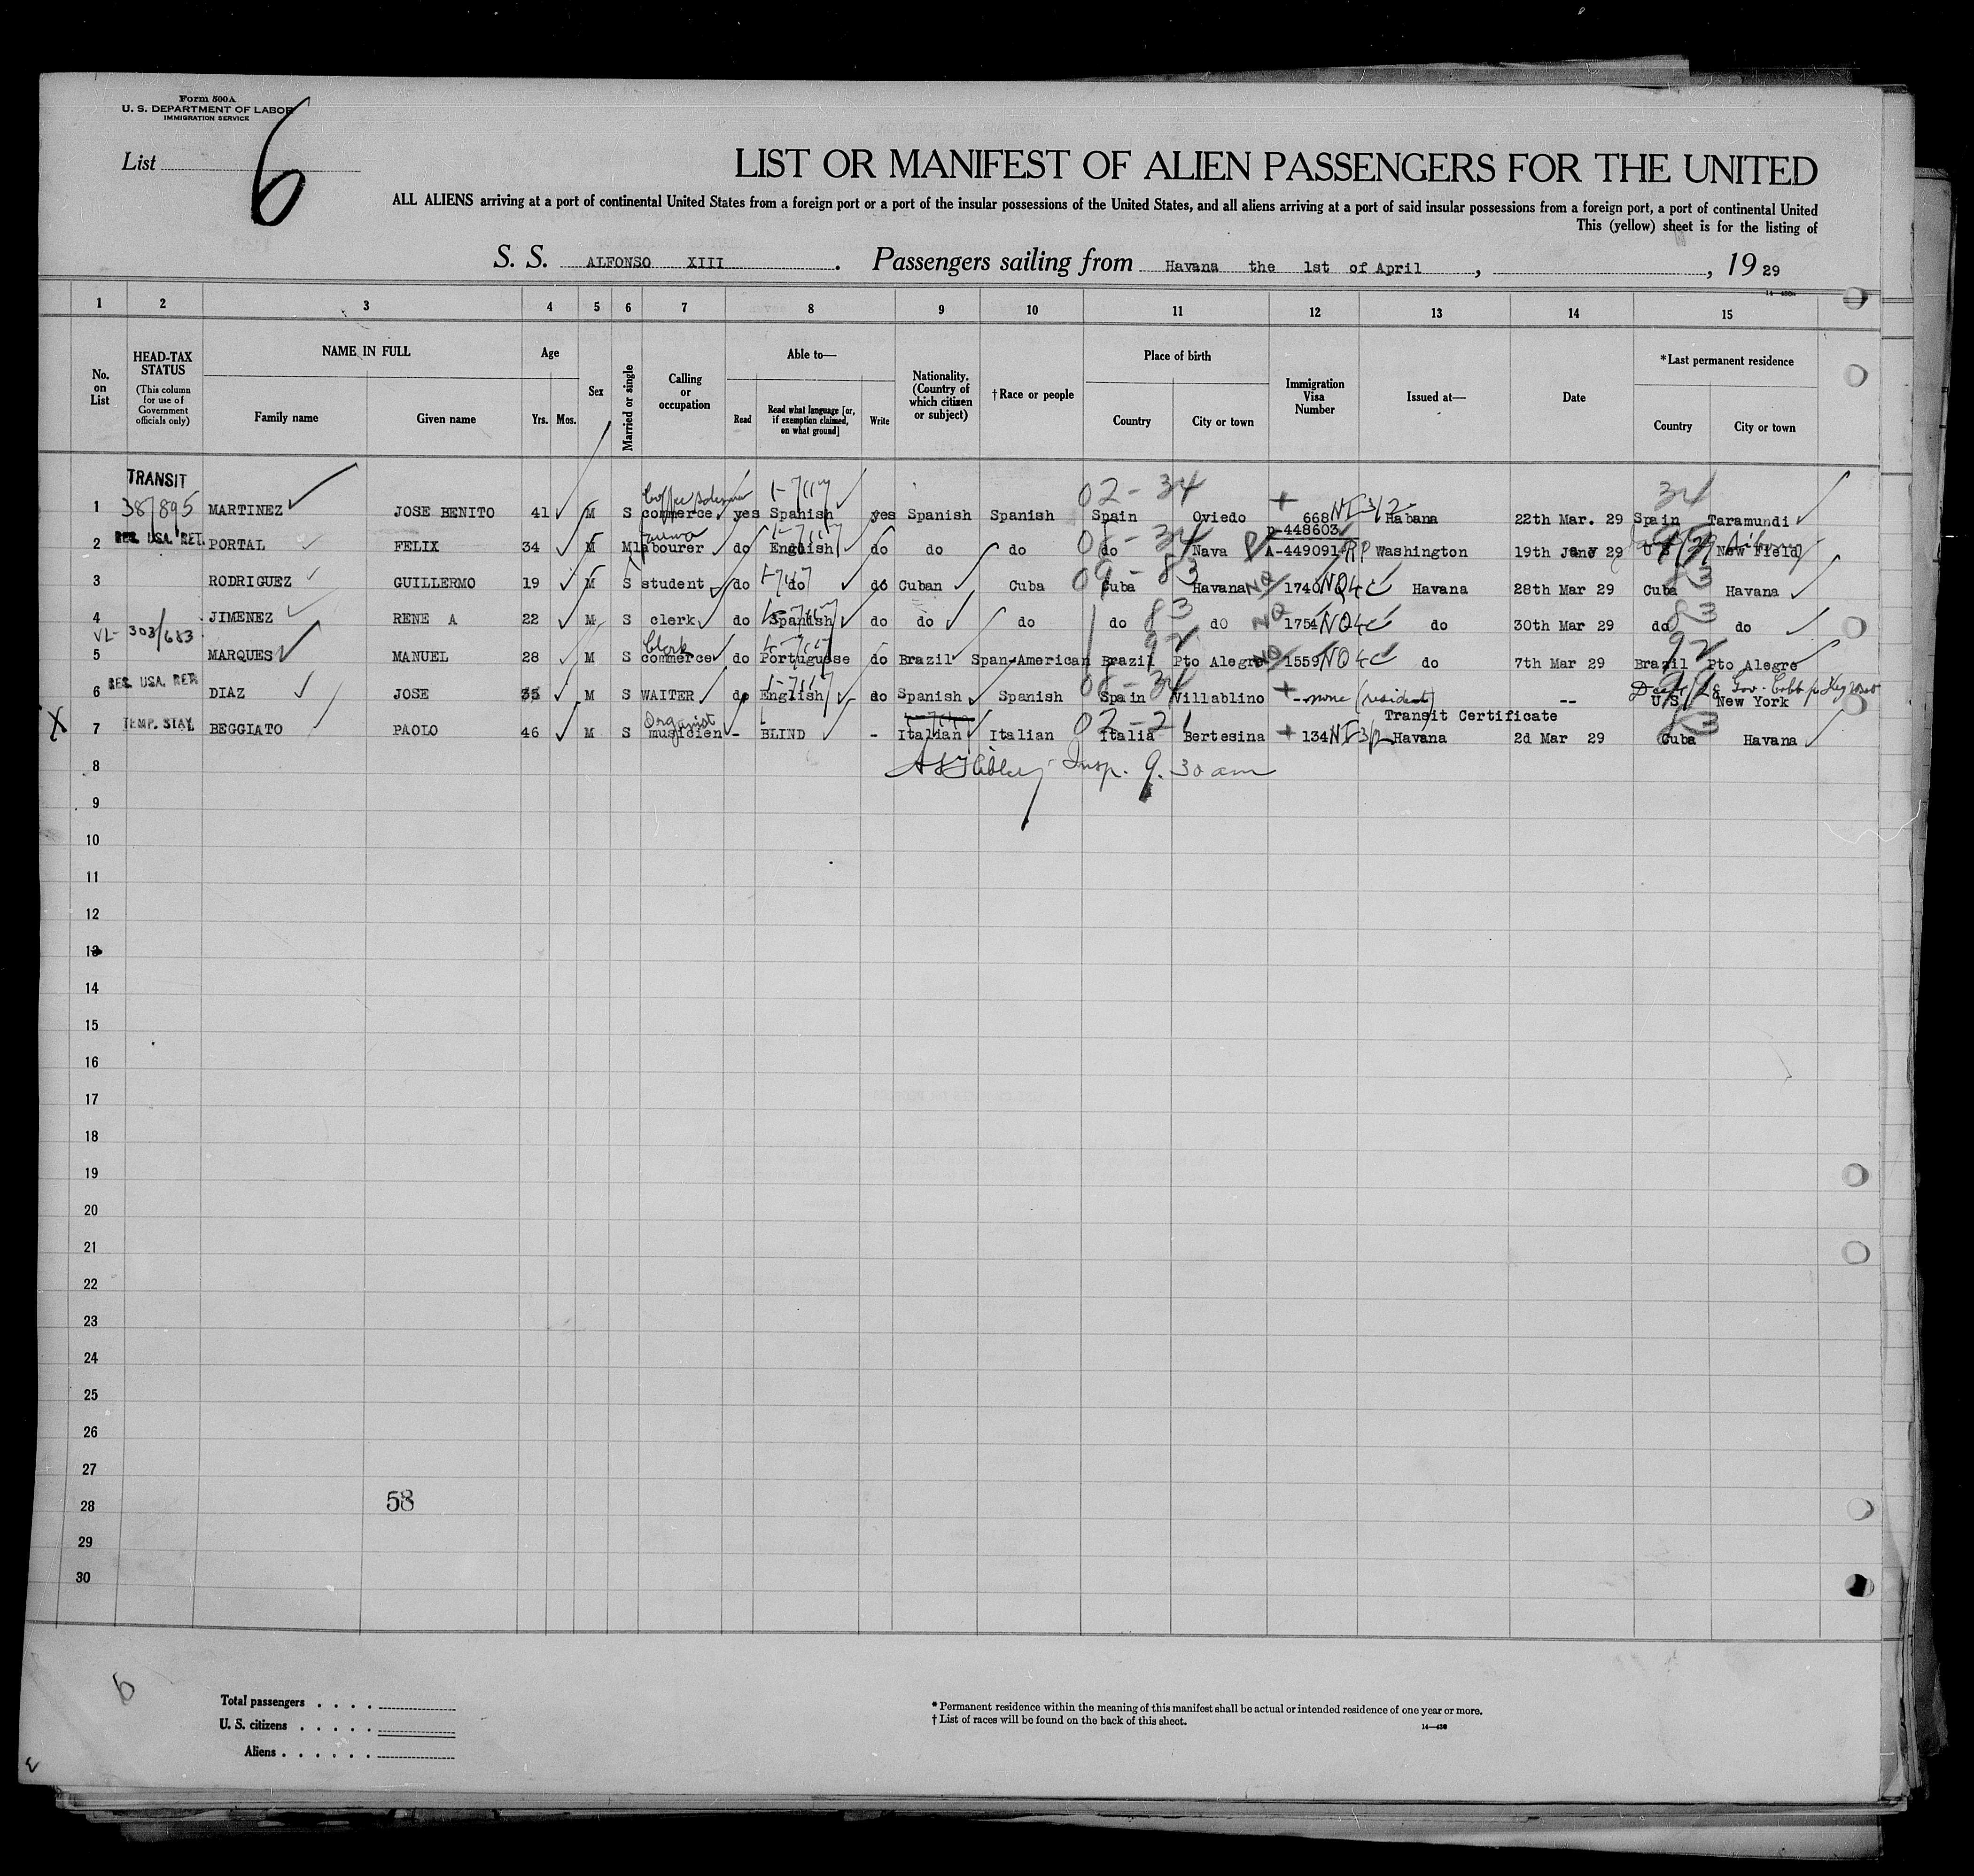 Form 500A
U. S. DEPARTMENT OF LABOR
IMMIGRATION SERVICE
List 6
LIST OR MANIFEST OF ALIEN PASSENGERS FOR THE UNITED
ALL ALIENS arriving at a port of continental United States from a foreign port or a port of the insular possessions of the United States, and all aliens arriving at a port of said insular possessions from a foreign port, a port of continental United
This (yellow) sheet is for the listing of
S. S. ALFONSO XIII. Passengers sailing from Havana the 1st of April, , 19 29
14-430a
1 2 3 4 5 6 7 8 9 10 11 12 13 14 15
No. on List
HEAD-TAX STATUS
(This column for use of Government officials only)
NAME IN FULL
Family name
Given name
Age
Yrs. Mos.
Sex
Married or single
Calling or occupation
Able to—
Read
Read what language [or, if exemption claimed, on what ground]
Write
Nationality. (Country of which citizen or subject)
†Race or people
Place of birth
Country
City or town
Immigration Visa Number
Issued at—
Date
*Last permanent residence
Country
City or town
TRANSIT
02-34 34
1 38/895 MARTINEZ JOSE BENITO 41 M S commerce yes Spanish yes Spanish Spanish Spain Oviedo 668 NI 3/2 Habana 22th Mar. 29 Spain Taramundi
p-448603
2 RES. USA. RET. PORTAL FELIX 34 M M labourer do English do do do do Nava A-449091 RP Washington 19th Jany 29 U S New Field
3 RODRIGUEZ GUILLERMO 19 M S student do do do Cuban Cuba Cuba Havana NQ 1740 NQ4C Havana 28th Mar 29 Cuba Havana
4 JIMENEZ RENE A 22 M S clerk do Spanish do do do do 83 do NQ 1754 NQ4C do 30th Mar 29 do 83 do
VL- 303/683
Clerk 92 92
5 MARQUES MANUEL 28 M S commerce do Portuguese do Brazil Span-American Brazil Pto Alegre NQ 1559 NQ4C do 7th Mar 29 Brazil Pto Alegre
RES. USA. RET.
6 DIAZ JOSE 35 M S WAITER do English do Spanish Spanish Spain Villablino - none (resident) -- U S New York
Organist 02-21 Transit Certificate 83
X 7 TEMP. STAY BEGGIATO PAOLO 46 M S musicien - BLIND - Italian Italian Italia Bertesina 134 NI 3/2 Havana 2d Mar 29 Cuba Havana
8 Insp. 9.30 am
9
10
11
12
13
14
15
16
17
18
19
20
21
22
23
24
25
26
27
28 58
29
30
6
Total passengers
U. S. citizens
Aliens
* Permanent residence within the meaning of this manifest shall be actual or intended residence of one year or more.
† List of races will be found on the back of this sheet.
14—430